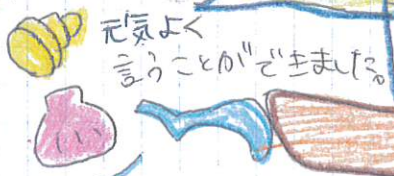 元気よく
言うことができました。